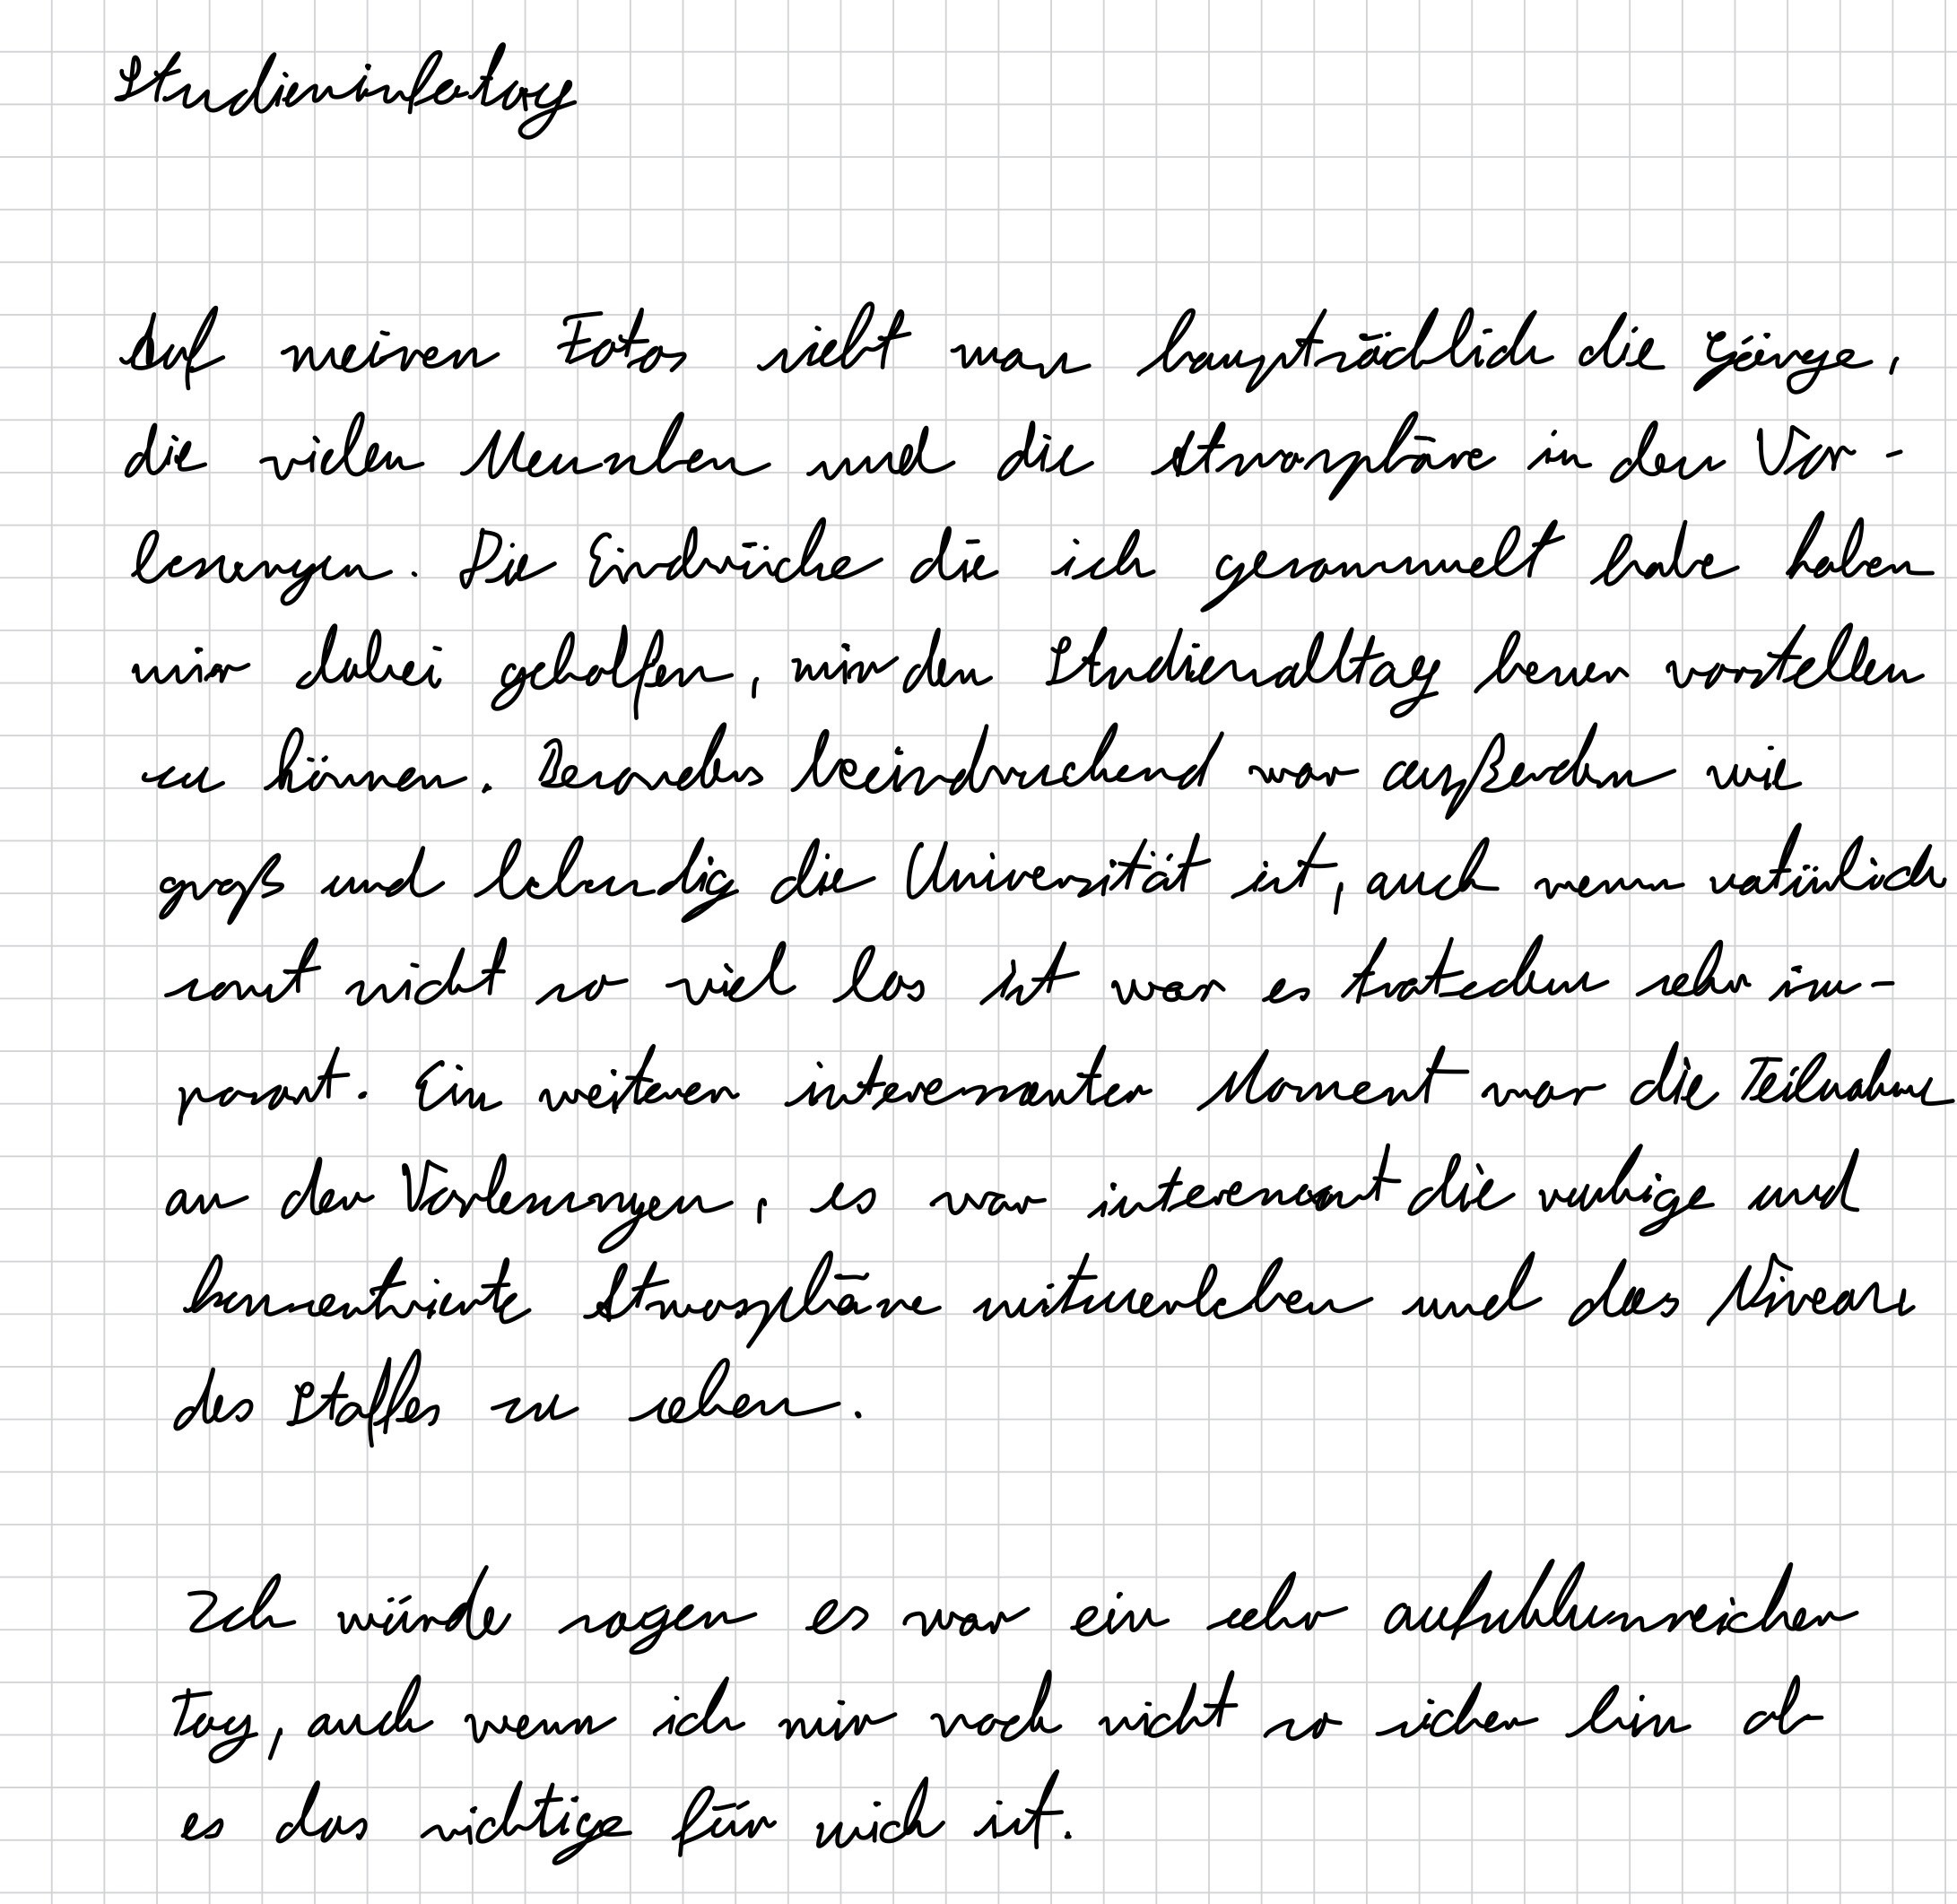 Studieninfotag
Auf meinen Fotos sieht man hauptsächlich die Gänge,
die vielen Menschen und die Atmosphäre in den Vor-
lesungen. Die Eindrücke die ich gesammelt habe haben
mir dabei geholfen, mir den Studienalltag besser vorstellen
zu können. Besonders beeindruckend war außerdem wie
groß und lebendig die Universität ist, auch wenn natürlich
sonst nicht so viel los ist war es trotzdem sehr im-
posant. Ein weiterer interessanter Moment war die Teilnahme
an den Vorlesungen, es war interessant die ruhige und
konzentrierte Atmosphäre mitzuerleben und das Niveau
des Stoffes zu sehen.
Ich würde sagen es war ein sehr aufschlussreicher
Tag, auch wenn ich mir noch nicht so sicher bin ob
es das richtige für mich ist.